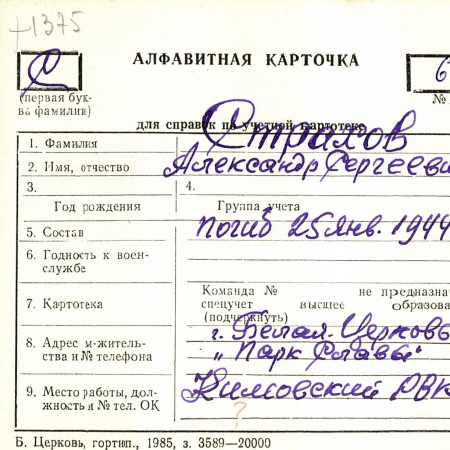 +1375
АЛФАВИТНАЯ КАРТОЧКА
С
6
(первая бук-
ва фамилии)
№
для справок по учетной картотеке
1. Фамилия Страхов
2. Имя, отчество Александр Сергееви
3.
4.
Год рождения
Группа учета
5. Состав погиб 25 янв. 1944
6. Годность к воен-
службе
7. Картотека
Команда № не предназна
спецучет высшее образова
(подчеркнуть)
8. Адрес м-житель-
ства и № телефона
г. Белая-Церковь
"Парк Славы"
9. Место работы, дол-
жность и № тел. ОК
Кимовский РВК
?
Б. Церковь, гортип., 1985, з. 3589—20000